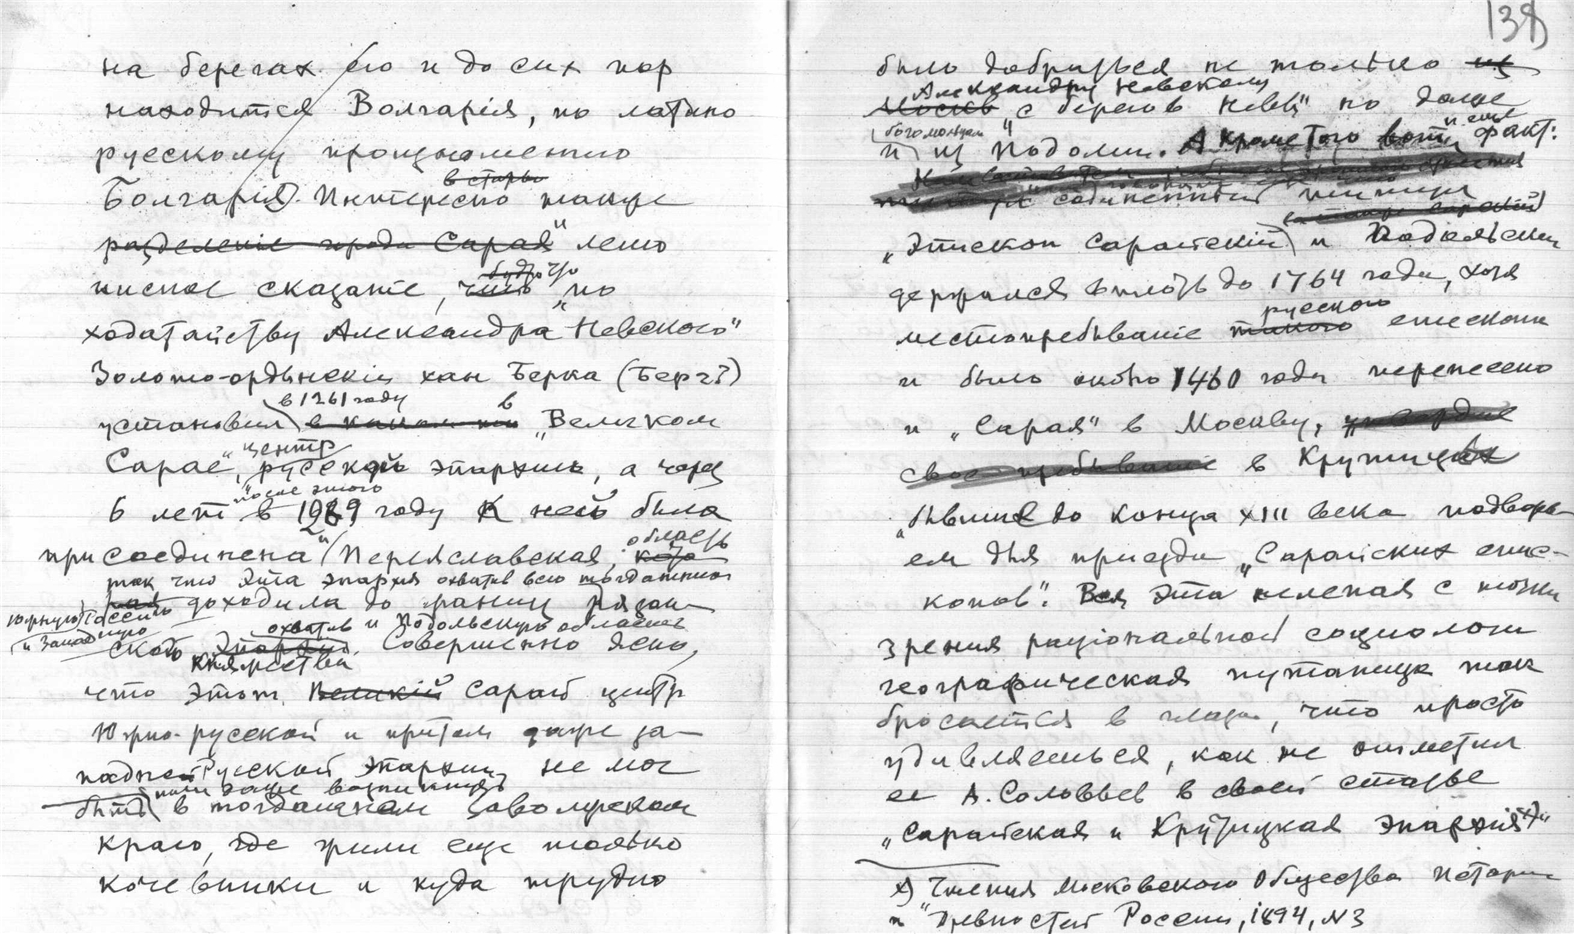 на берегах его и до сих пор
находится Волгарія, по латино
русскому произношению
в старь
Болгарія). Интересно также
разделеніе города Сарая" лето
писное сказаніе, что будто "по
ходатайству Александра Невского"
Золото-ордынскій хан Берка (Берг?)
в 1261 году в
установил "Великом
центр
Сарае", русской эпархіи, а через
после этого
6 лет в 1269 году к ней была
область
присоединена" Переяславская,
так что эта эпархия охватив всю тогдашнюю
доходила до границ Рязан-
южную Россію
и Западную
охватив и Подольскую область
ского Эпархію. Совершенно ясно,
княжества
что этот Великій Сарай центр
Южно-русской и притом даже за-
падно-Русской Эпархии, не мог
или даже возникнуть
быть в тогдашнем заволжском
краю, где жили еще только
кочевники и куда трудно
138
было добраться не только из
Александру Невскому
Москвы "с берегов Невы" но даже
богомольцам
и из Подолии. А кроме того вот и еще факт:
соединенный
"Епископ Сарайскій и Подольскій
держался вплоть до 1764 года, хотя
русского
местопребываніе такого епископа
и было около 1460 года перенесено
и "Сарая" в Москву,
свое пребываніе в Крутицах
"бывшие до конца XIII века подворь-
ем для приезда "Сарайских епис-
копов". Вся эта нелепая с точки
зрения раціональной социологіи
географическая путаница так
бросается в глаза, что просто
удивляешься, как не отметил
ее А. Соловьев в своей статье
"Сарайская и Крутицкая Эпархія" х)
х) Чтения Московского Общества Истории
и "Древностей России, 1894, N3